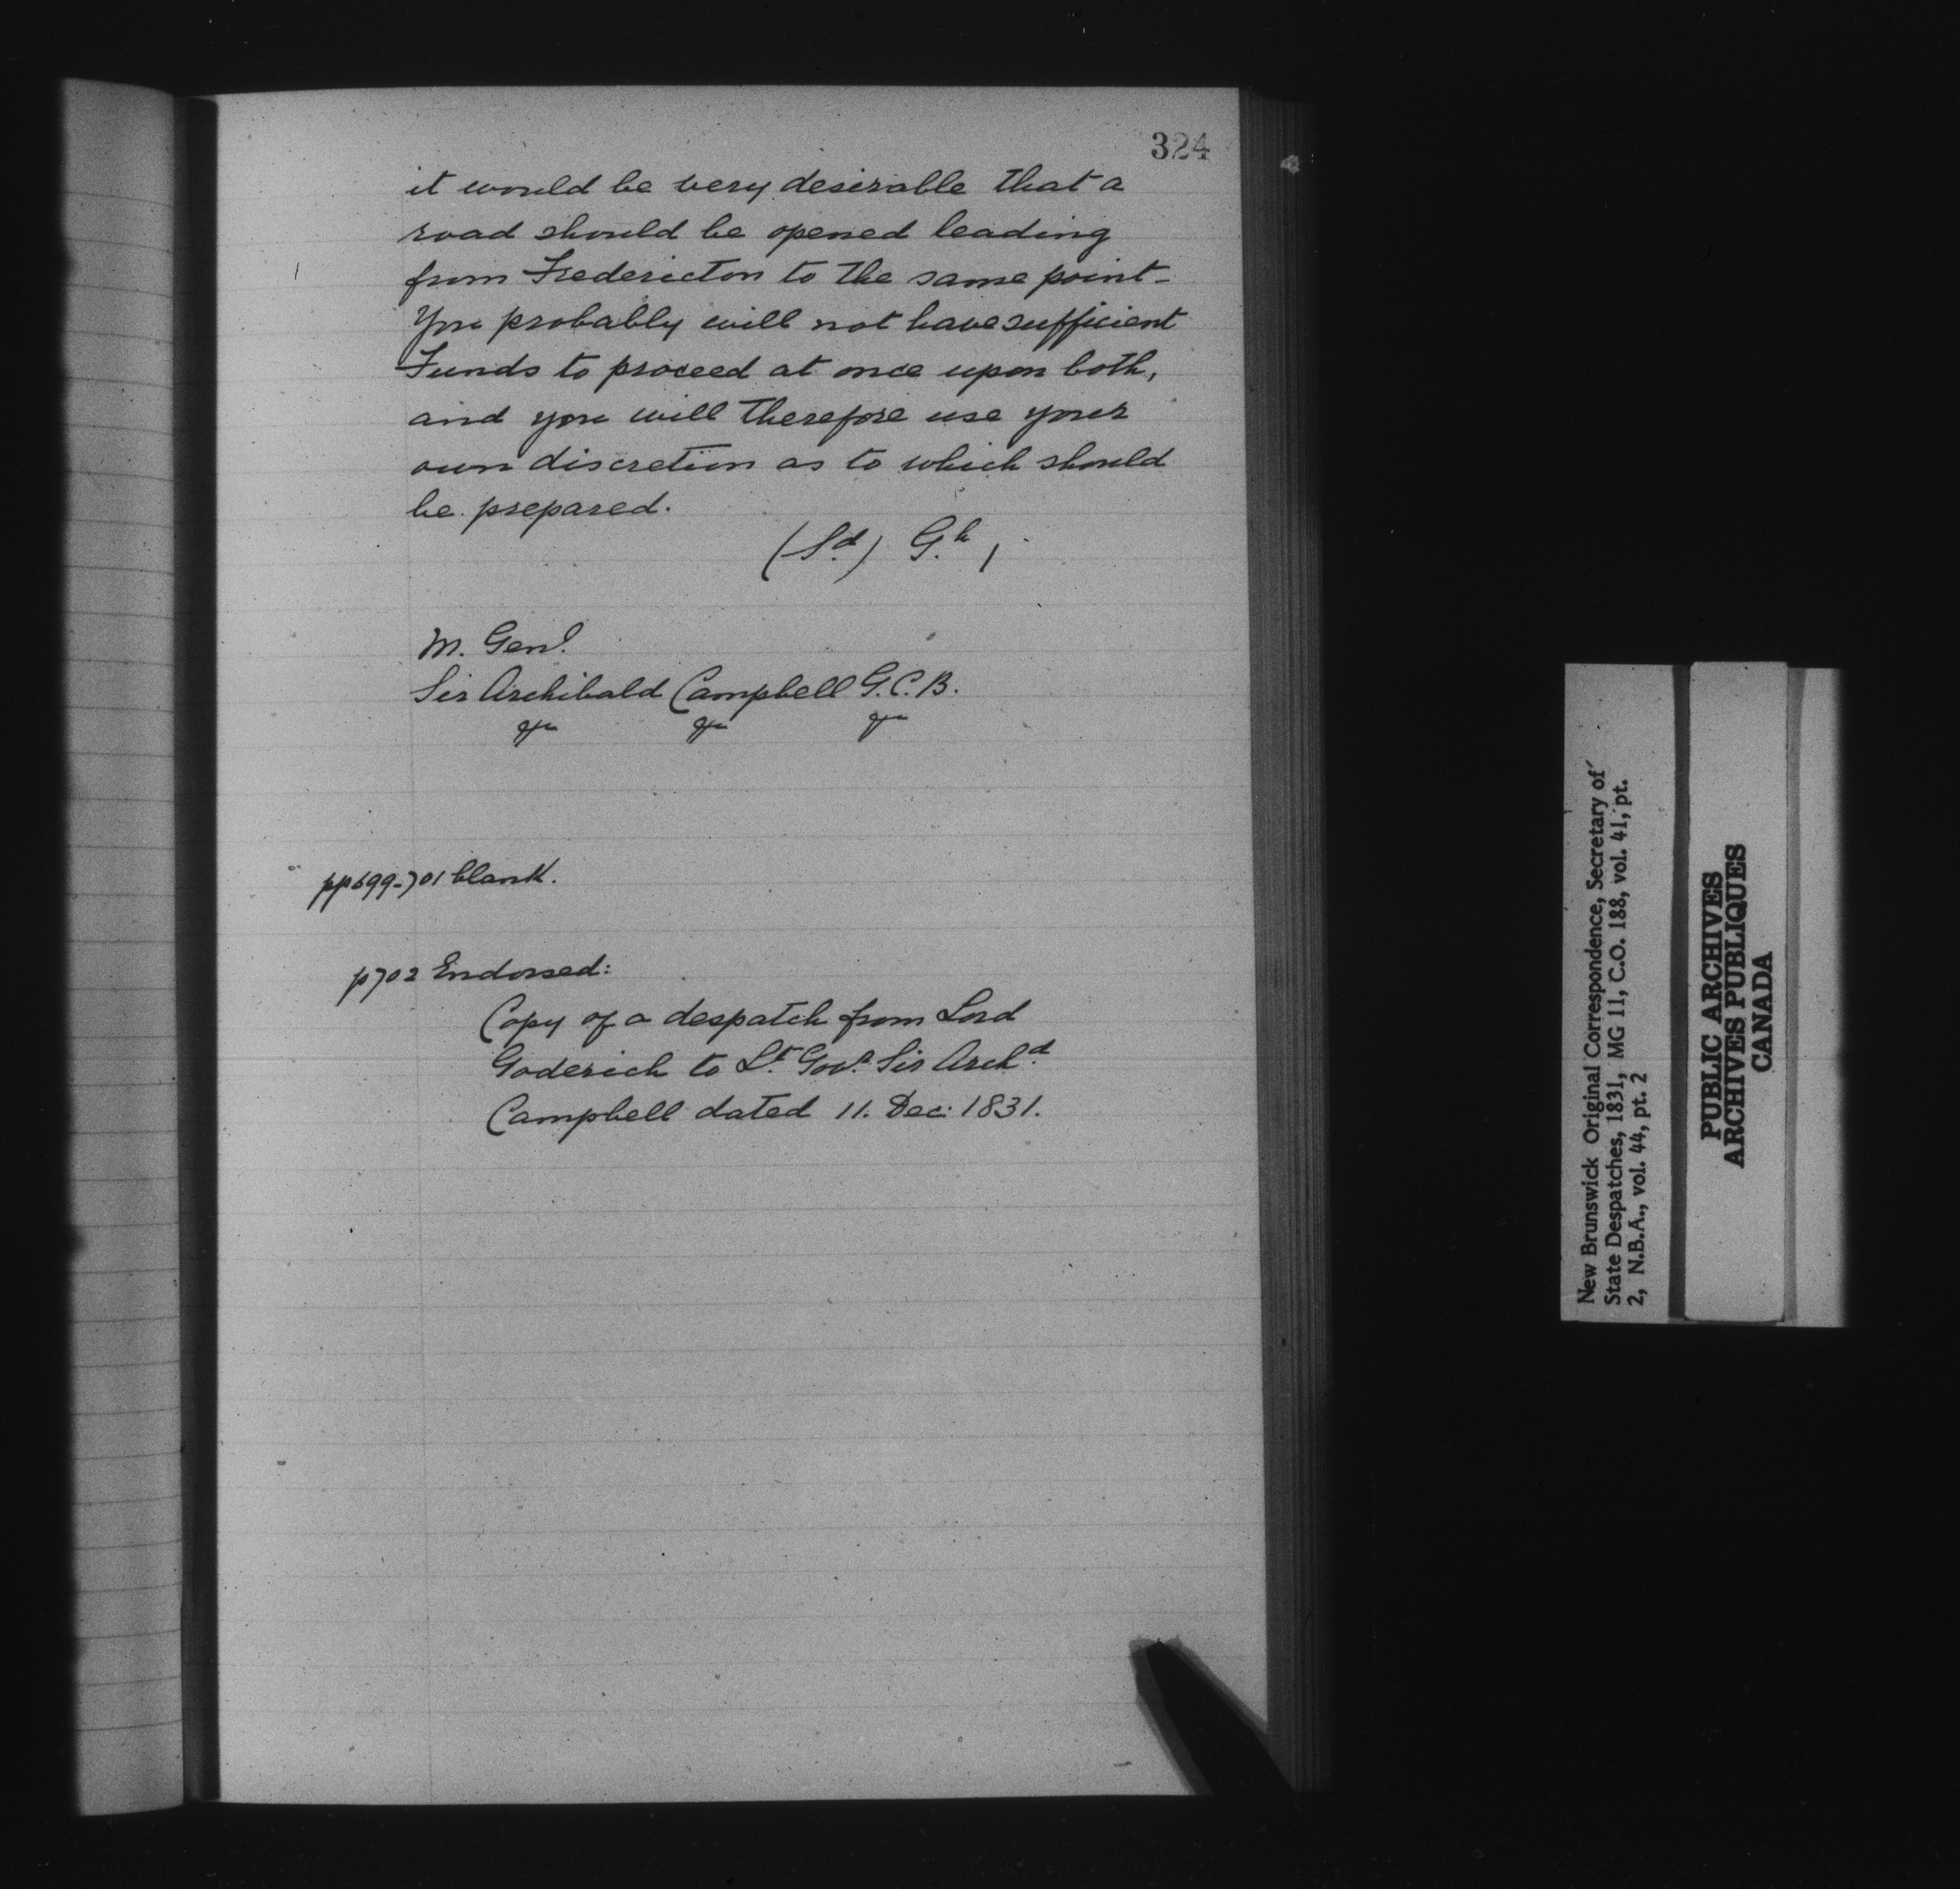 324
it would be very desirable that a
road should be opened leading
from Fredericton to the same point-
You probably will not have sufficient
Funds to proceed at once upon both,
and you will therefore use your
own discretion as to which should
be prepared.
(Sd) G.h,
M. Genl.
Sir Archibald Campbell G.C.B.
pp 699-701 blank.
p 702 Endorsed:
Copy of a despatch from Lord
Goderich to Lt. Govr. Sir Archd.
Campbell dated 11. Dec: 1831.
New Brunswick Original Correspondence, Secretary of
State Despatches, 1831, MG 11, C.O. 188, vol. 41, pt.
2, N.B.A., vol. 44, pt. 2
PUBLIC ARCHIVES
ARCHIVES PUBLIQUES
CANADA